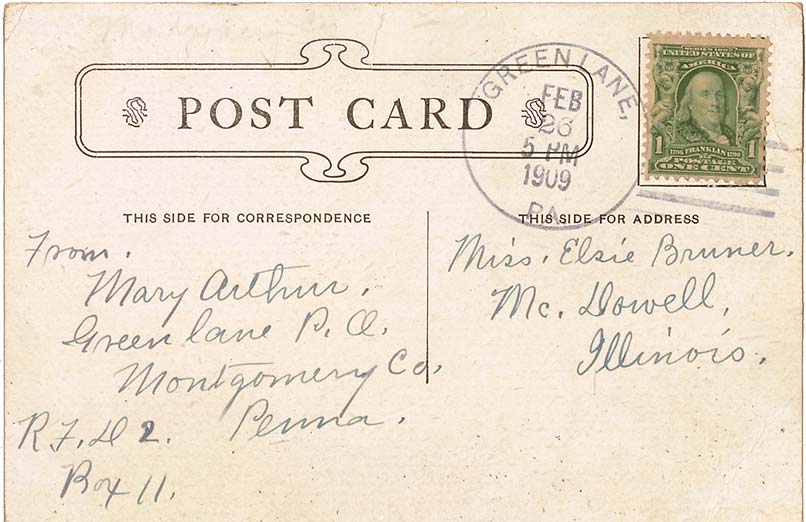 POST CARD
GREEN LANE,
FEB
26
5 PM
1909
PA.
SERIES 1902
UNITED STATES OF
AMERICA
1 1706 FRANKLIN 1790 1
POSTAGE
ONE CENT
THIS SIDE FOR CORRESPONDENCE
From.
Mary Arthur.
Green lane P. O.
Montgomery Co.
Penna.
R. F. D 2.
Box 11.
THIS SIDE FOR ADDRESS
Miss. Elsie Bruner.
Mc. Dowell,
Illinois.